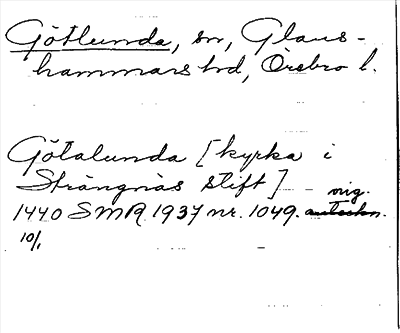 Götlunda, sn, Glans-
hammars hd, Örebro l.
Götalunda [kyrka i
Strängnäs stift] - orig.
1440 SMR 1937 nr. 1049.
10/1